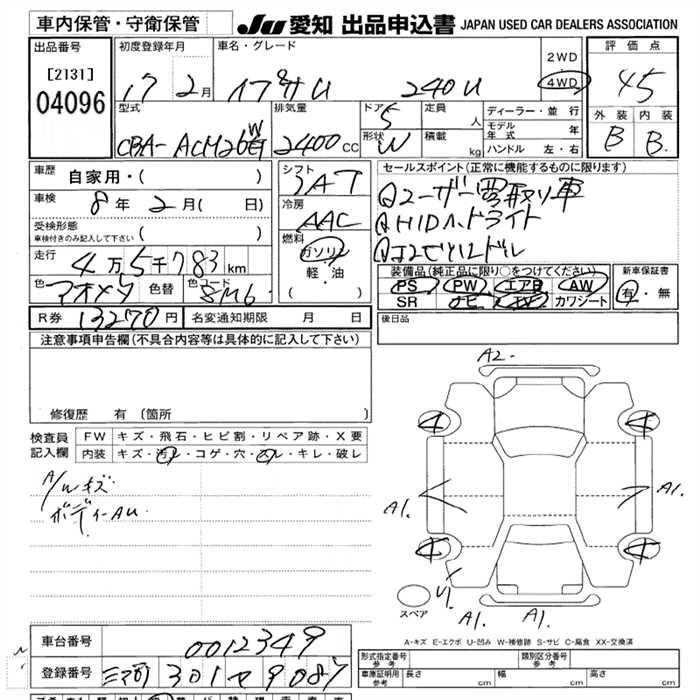 車内保管・守衛保管
JU 愛知 出品申込書 JAPAN USED CAR DEALERS ASSOCIATION
出品番号 初度登録年月 車名・グレード 2WD 評価点
[2131] 17 2月 240U 4WD 4.5
04096 型式 排気量 ドア 5 定員 人 ディーラー・並行 外装 内装
CBA-ACM26W 2400cc 形状 W 積載 kg モデル年式 年 B B
ハンドル 左・右
車歴 自家用・( ) シフト IAT セールスポイント(正常に機能するものに限ります)
車検 8年 2月( 日) 冷房 AAC ①ユーザー買取り車
受検形態 車検付きのみ記入して下さい ( ) ②HIDヘッドライト
走行 4万5千783km 燃料 ガソリン 軽・油 ( )
装備品(純正品に限り○をつけてください) 新車保証書
色 アオメタ 色替 色コード 8M6 PS PW エアB AW 有・無
SR ナビ TV カワシート
R券 13270円 名変通知期限 月 日 後日品
注意事項申告欄(不具合内容等は具体的に記入して下さい)
A2
修復歴 有 (箇所
検査員記入欄 FW キズ・飛石・ヒビ割・リペア跡・X要
内装 キズ・汚れ・コゲ・穴・スレ・キレ・破レ
A/Wキズ
ボディーAU
4 4
A1. A1.
4 4
U1.
スペア A1. A1.
A-キズ E-エクボ U-凹み W-補修跡 S-サビ C-腐食 XX-交換済
車台番号 0012349
登録番号 301 9087
形式指定番号 参考 類別区分番号 参考
車庫証明用 参考 長さ cm 幅 cm 高さ cm